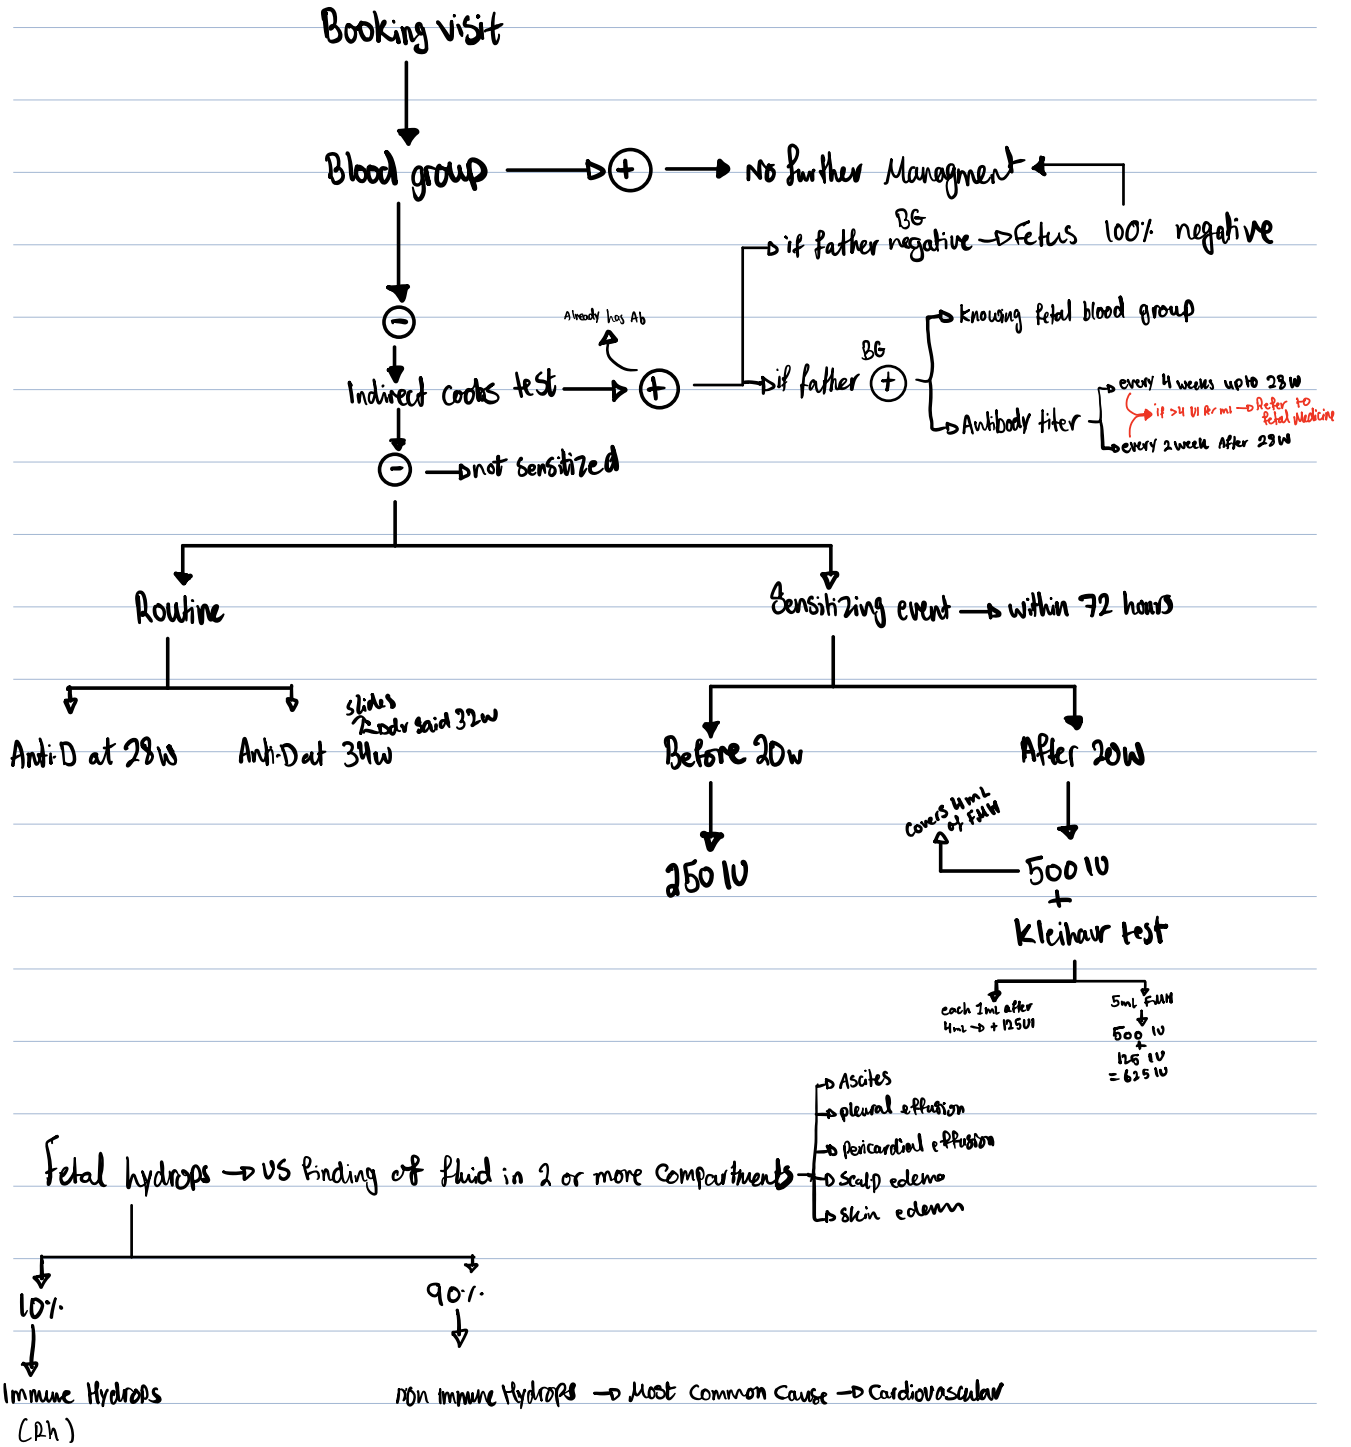 Booking visit
Blood group
+
No further Managment
BG
if father negative
Fetus 100% negative
-
Already has Ab
Indirect coobs test
+
BG
if father +
Knowing fetal blood group
Antibody titer
every 4 weeks upto 28w
if >4 UI Per ml → Refer to
fetal Medicine
every 2 week After 28w
-
not sensitized
Routine
Sensitizing event → within 72 hours
Anti-D at 28w
Anti-D at 34w
slides
dr said 32w
Before 20w
After 20w
250 IU
covers 4mL
of FMH
500 IU
+
Kleihaur test
each 1mL after
4mL → + 125UI
5mL FMH
500 IU
+
125 IU
= 625 IU
Fetal hydrops → US finding of fluid in 2 or more compartments
Ascites
pleural effusion
Pericardial effusion
Scalp edema
Skin edema
10%
90%
Immune Hydrops
(Rh)
non immune Hydrops → Most Common Cause → Cardiovascular